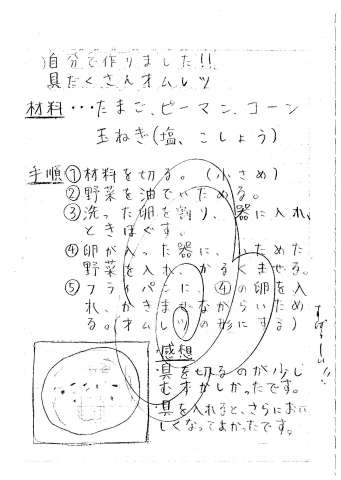 自分で作りました!!
具だくさんオムレツ
材料・・・たまご、ピーマン、コーン
玉ねぎ(塩、こしょう)
手順①材料を切る。(小さめ)
②野菜を油でいためる。
③洗った卵を割り、器に入れ、
ときほぐす。
④卵が入った器に、いためた
野菜を入れ、かるくまぜる。
⑤フライパンに、④の卵を入
れ、かきまぜながらいため
る。(オムレツの形にする)
感想
具を切るのが少し
むずかしかったです。
具を入れると、さらにおい
しくなってよかったです。
すばらしい!!